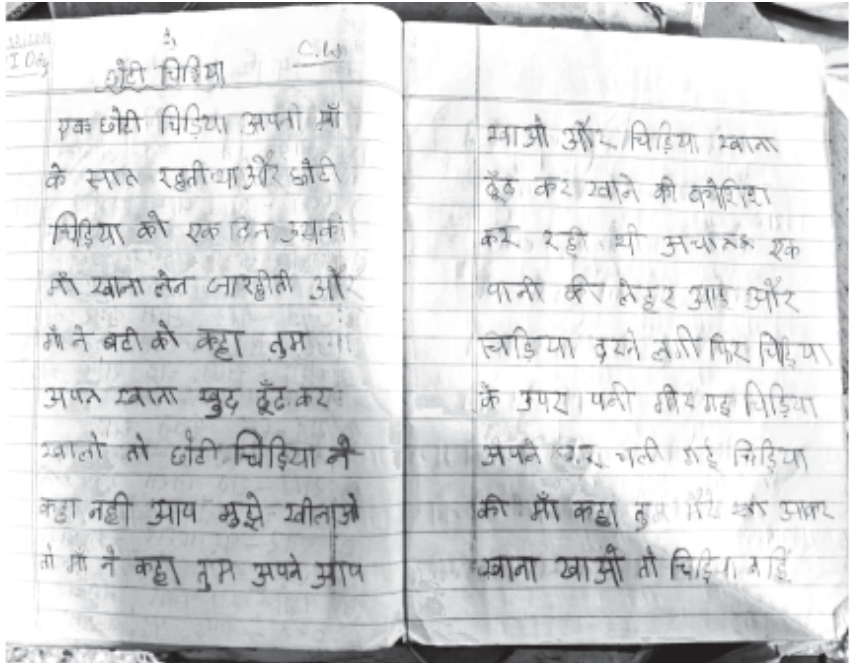 C.W
छोटी चिड़िया
एक छोटी चिड़िया अपनी माँ
के सात रहती था और छोटी
चिड़िया को एक दिन उसकी
माँ खाना लेन जारहीती और
माँ ने बेटी को कहा तुम
अपन खाना खुद ढूँढ कर
खालो तो छोटी चिड़िया ने
कहा नही आप मुझे खीलाओ
तो माँ ने कहा तुम अपने आप
खाओ और चिड़िया खाना
ढूँढ कर खाने की कोशिश
कर रही थी अचानक एक
पानी की लेहर आइ और
चिड़िया डरने लगी फिर चिड़िया
के उपर पनी गीर गइ चिड़िया
अपने गर चली गई चिड़िया
की माँ कहा तुम मेरे आकर
खाना खाओ तो चिड़िया गई